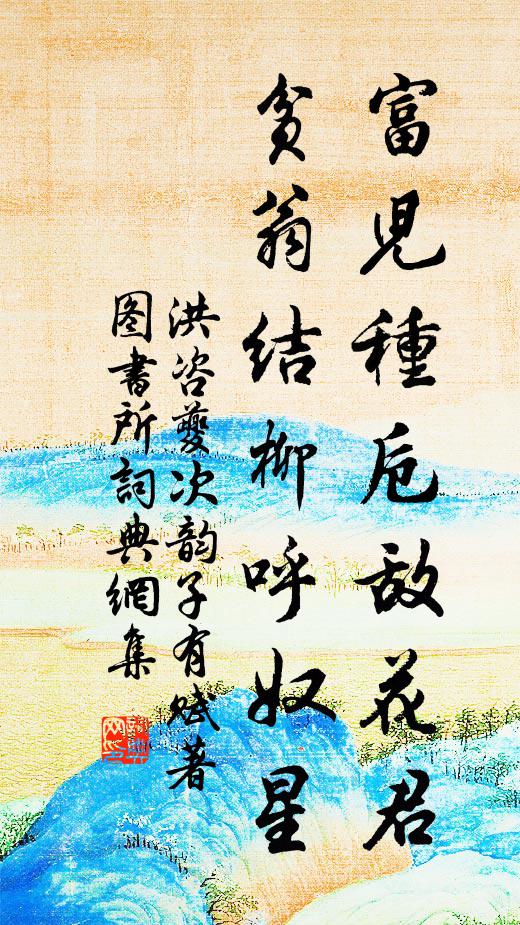 富児種卮敌花君
貧翁结柳呼奴星
洪咨夔次韵子有赋著
图書所詞典網集